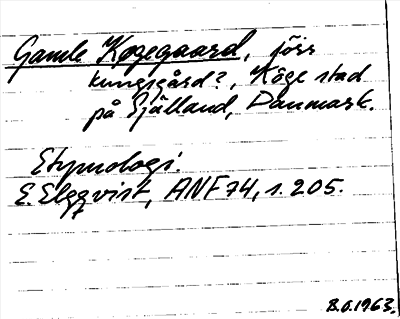 Gamle Køgegaard, förr
kungsgård?, Köge stad
på Själland, Danmark.
Etymologi.
E. Elgqvist, ANF 74, s. 205.
8.6.1963.